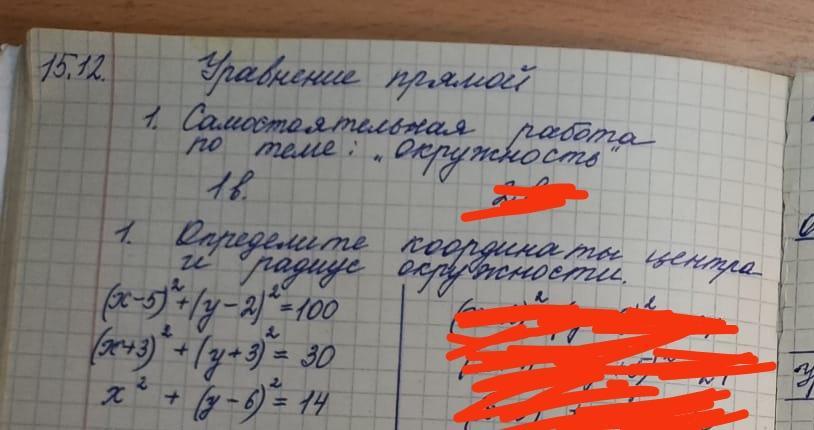 15.12. Уравнение прямой
1. Самостоятельная работа
по теме: „окружность"
1в.
1. Определите координаты центра
и радиус окружности.
(x-5)²+(y-2)²=100
(x+3)²+(y+3)²=30
x²+(y-6)²=14